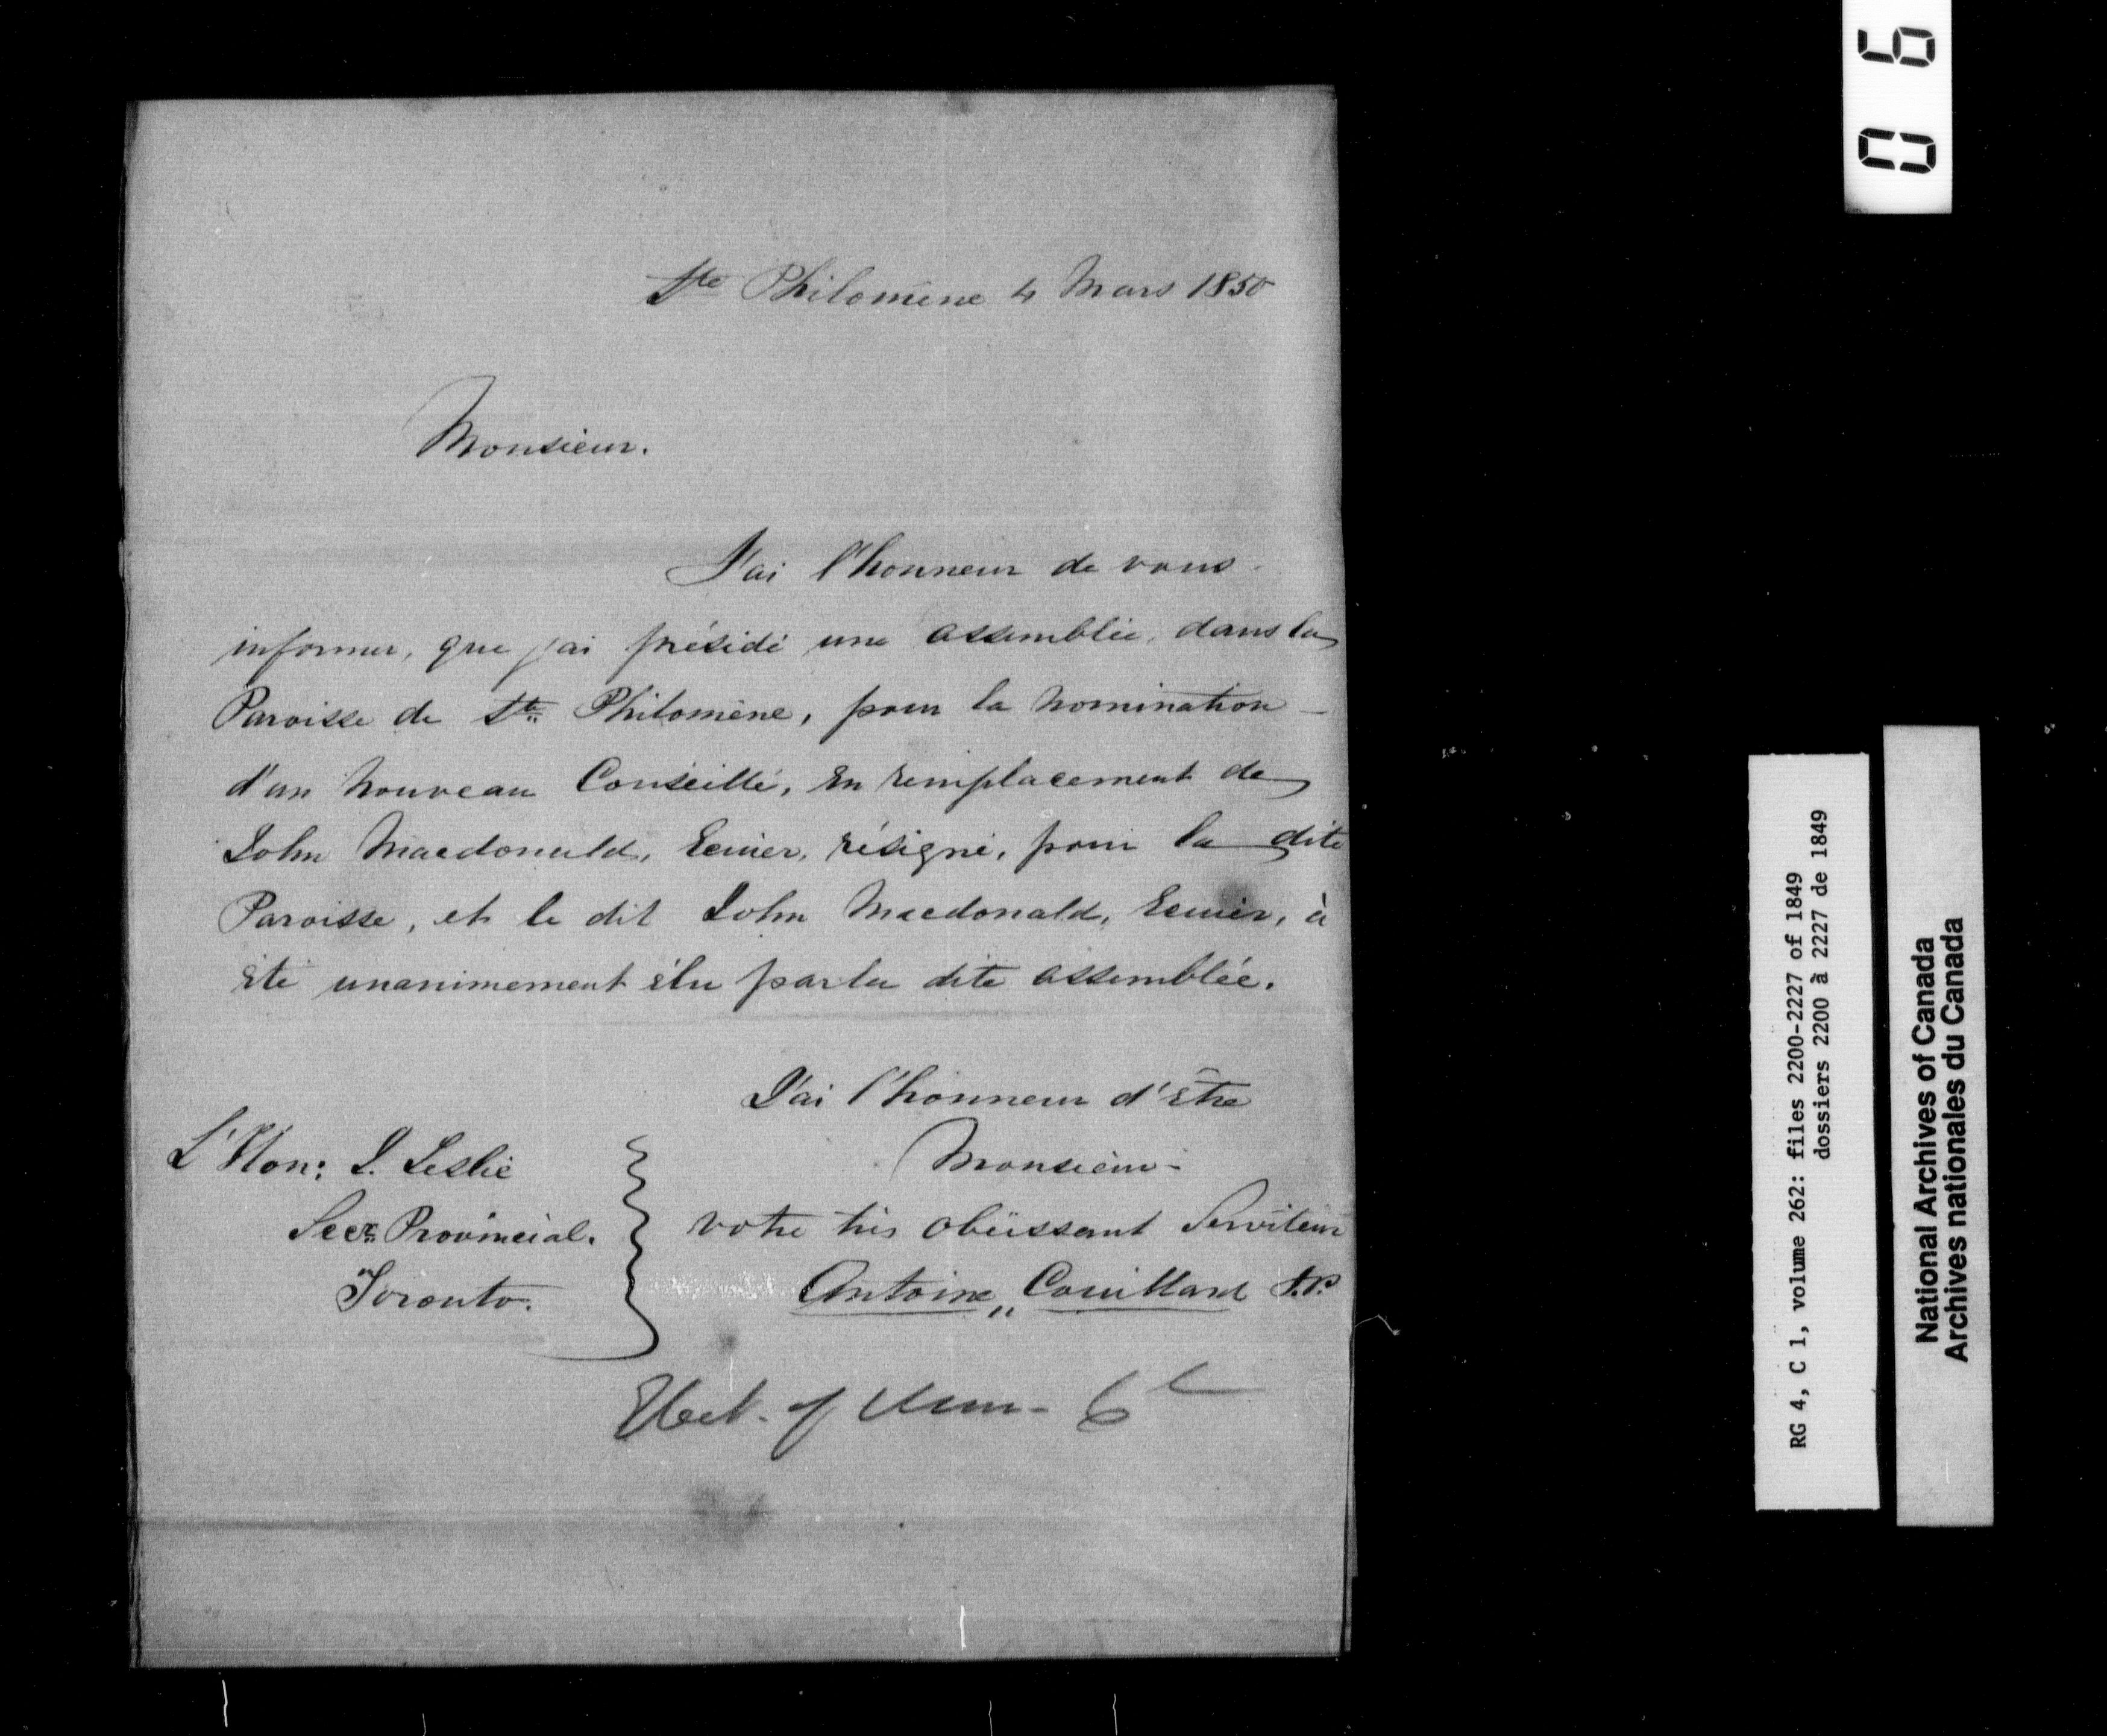 Ste Philomène 4 Mars 1850
Monsieur.
J'ai l'honneur de vous
informer, que j'ai présidé une assemblée, dans la
Paroisse de Ste Philomène, pour la nomination
d'un nouveau Conseillé, en remplacement de
John Macdonald, Ecuier, résigné, pour la dite
Paroisse, et le dit John Macdonald, Ecuier, à
été unanimement élu par la dite assemblée.
J'ai l'honneur d'être
Monsieur
votre très obéissant Serviteur
Antoine Couillard J.P.
L'Hon: J. Leslie
Secr. Provincial.
Toronto.
Elect. of
06
RG 4, C 1, volume 262: files 2200-2227 of 1849
dossiers 2200 à 2227 de 1849
National Archives of Canada
Archives nationales du Canada